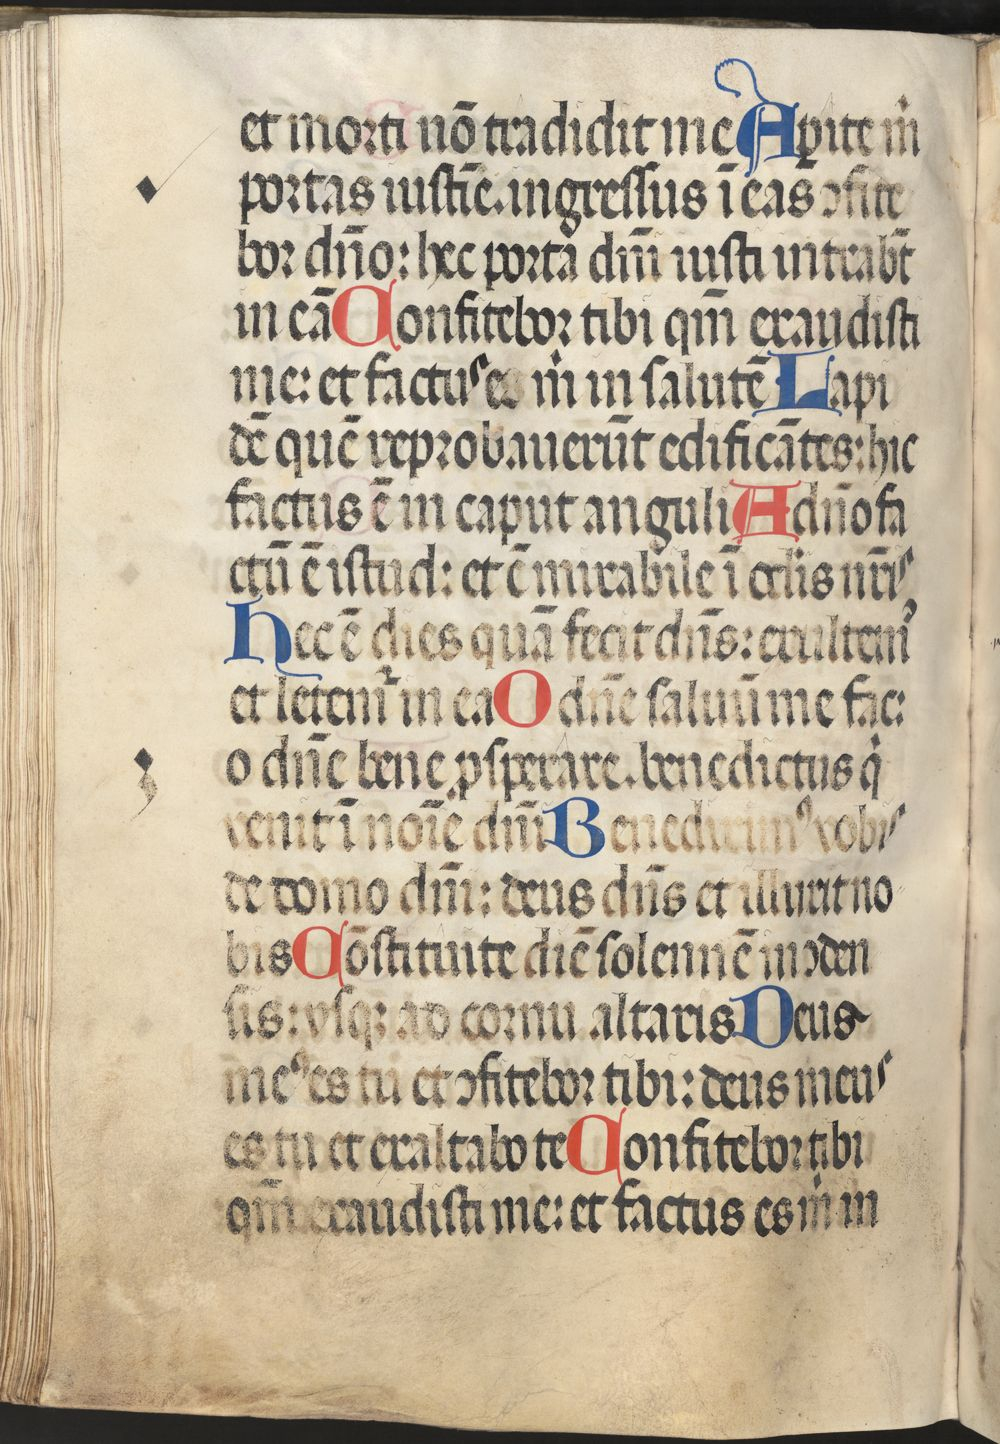 et morti nō tradidit me Apite m̍
portas iusticīe.ingressus ī eas ɔfite
bor dn̄o: hec porta dn̄i iusti intrabt̄
in eā Confitebor tibi qm̄ exaudisti
me: et factus es m̍ in salutē Lapi
dē quē reprobauerūt edificātes: hic
factus ē in caput anguli A dn̄o fa
ctū ē istud: et ē mirabile ī oclis nr̄is
Hec ē dies quā fecit dn̄s: exultem᷒
et letem᷒ in ea O dn̄e saluū me fac:
o dn̄e bene ꝓsperare. benedictus q̍
venit ī noīe dn̄i Benedixim᷒ vobis
de domo dn̄i: deus dn̄s et illuxit no
bis Cōstituite diē solennē in ɔden
sis: vsqꝫ ad cornu altaris Deus
me᷒ es tu et ɔfitebor tibi: deus meus
es tu et exaltabo te Confitebor tibi
qm̄ exaudisti me: et factus es m̍ in